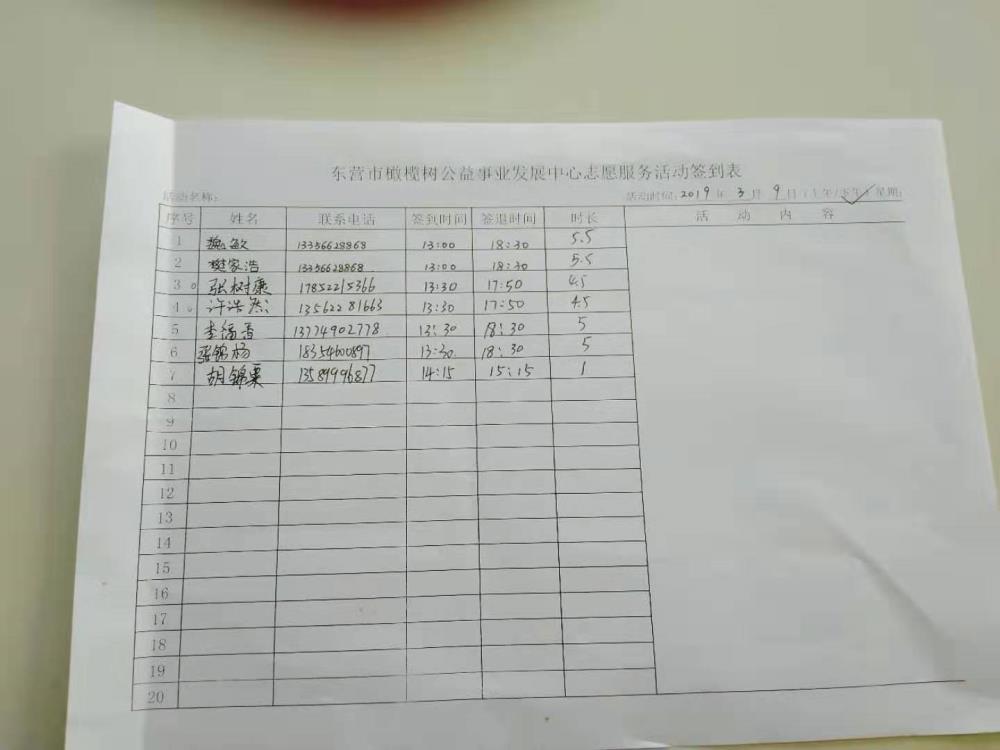 东营市橄榄树公益事业发展中心志愿服务活动签到表
活动名称: 活动时间: 2019 年 3 月 9 日 (上午/下午✓) 星期:
序号 姓名 联系电话 签到时间 签退时间 时长 活 动 内 容
1 魏敏 13356628868 13:00 18:30 5.5
2 樊家浩 13356628868 13:00 18:30 5.5
3 张树康 17852215366 13:30 17:50 4.5
4 许浩然 13562281663 13:30 17:50 4.5
5 13774902778 13:30 18:30 5
6 张锦杨 18354600897 13:30 18:30 5
7 胡锦栗 13589996877 14:15 15:15 1
8
9
10
11
12
13
14
15
16
17
18
19
20